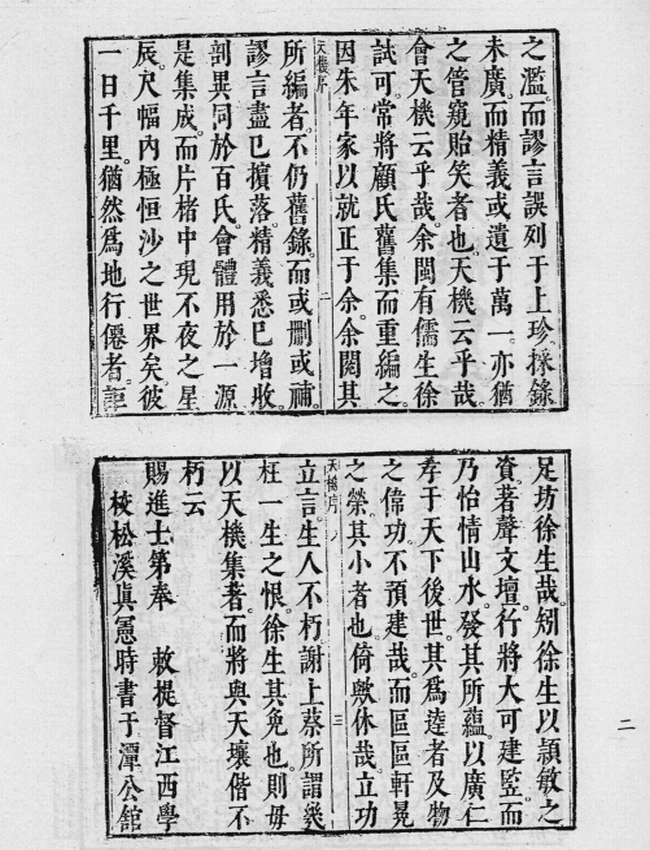 之濫。而謬言誤列于上珍。採錄
未廣。而精義或遺于萬一。亦猶
之管窺貽笑者也。天機云乎哉。
會天機云乎哉。余閩有儒生徐
試可。常將顧氏舊集而重編之。
因朱年家以就正于余。余閱其
天機序 二
所編者。不仍舊錄。而或刪或補。
謬言盡已擯落。精義悉已增收。
剖異同於百氏。會體用於一源
是集成。而片楮中現不夜之星
辰。尺幅內極恒沙之世界矣。彼
一日千里。猶然爲地行僊者。詎
足坊徐生哉。矧徐生以頴敏之
資。著聲文壇。行將大可建豎。而
乃怡情山水。發其所蘊。以廣仁
孝于天下後世。其爲達者及物
之偉功。不預建哉。而區區軒冕
之榮。其小者也。倚歟休哉。立功
天機序 三
立言。生人不朽。謝上蔡所謂幾
枉一生之恨。徐生其免也。則毋
以天機集著。而將與天壤偕不
朽云
賜進士第奉 敕提督江西學
校松溪眞憲時書于潭公舘
二